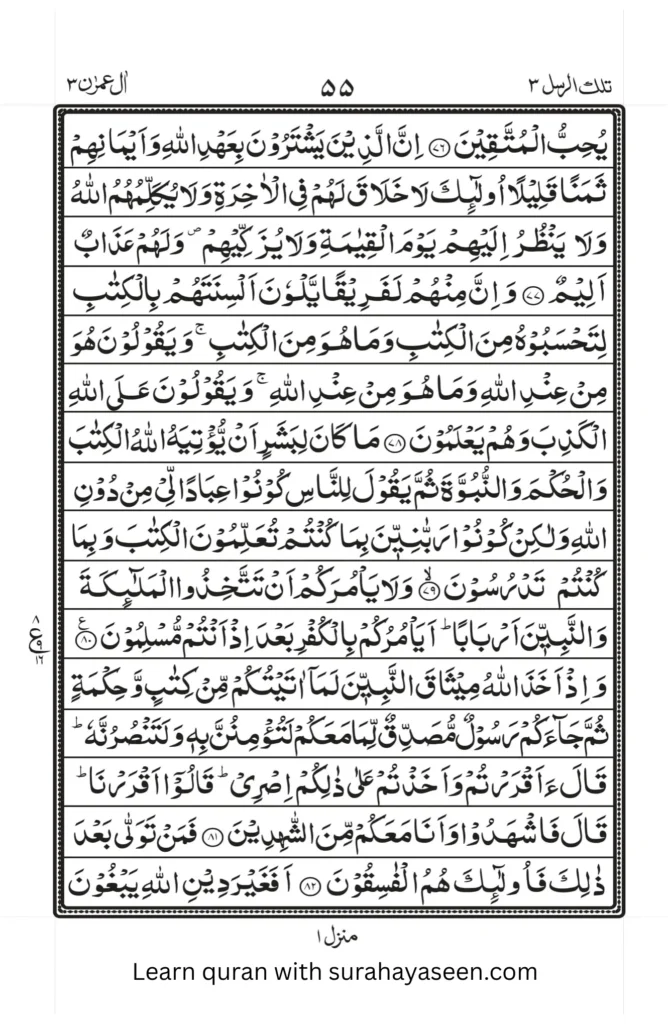 تلك الرسل ٣ ٥٥ اٰل عمرٰن ٣
يُحِبُّ الْمُتَّقِيْنَ ﴿٧٦﴾ اِنَّ الَّذِيْنَ يَشْتَرُوْنَ بِعَهْدِ اللّٰهِ وَاَيْمَانِهِمْ
ثَمَنًا قَلِيْلًا اُولٰٓئِكَ لَا خَلَاقَ لَهُمْ فِى الْاٰخِرَةِ وَلَا يُكَلِّمُهُمُ اللّٰهُ
وَلَا يَنْظُرُ اِلَيْهِمْ يَوْمَ الْقِيٰمَةِ وَلَا يُزَكِّيْهِمْ ۪ وَلَهُمْ عَذَابٌ
اَلِيْمٌ ﴿٧٧﴾ وَاِنَّ مِنْهُمْ لَفَرِيْقًا يَّلْوٗنَ اَلْسِنَتَهُمْ بِالْكِتٰبِ
لِتَحْسَبُوْهُ مِنَ الْكِتٰبِ وَمَا هُوَ مِنَ الْكِتٰبِ ۚ وَيَقُوْلُوْنَ هُوَ
مِنْ عِنْدِ اللّٰهِ وَمَا هُوَ مِنْ عِنْدِ اللّٰهِ ۚ وَيَقُوْلُوْنَ عَلَى اللّٰهِ
الْكَذِبَ وَهُمْ يَعْلَمُوْنَ ﴿٧٨﴾ مَا كَانَ لِبَشَرٍ اَنْ يُّؤْتِيَهُ اللّٰهُ الْكِتٰبَ
وَالْحُكْمَ وَالنُّبُوَّةَ ثُمَّ يَقُوْلَ لِلنَّاسِ كُوْنُوْا عِبَادًا لِّىْ مِنْ دُوْنِ
اللّٰهِ وَلٰكِنْ كُوْنُوْا رَبّٰنِيّٖنَ بِمَا كُنْتُمْ تُعَلِّمُوْنَ الْكِتٰبَ وَبِمَا
كُنْتُمْ تَدْرُسُوْنَ ۙ﴿٧٩﴾ وَلَا يَاْمُرَكُمْ اَنْ تَتَّخِذُوا الْمَلٰٓئِكَةَ
وَالنَّبِيّٖنَ اَرْبَابًا ؕ اَيَاْمُرُكُمْ بِالْكُفْرِ بَعْدَ اِذْ اَنْتُمْ مُّسْلِمُوْنَ ﴿٨٠﴾ ع
٨ ع ٩ ١٦
وَاِذْ اَخَذَ اللّٰهُ مِيْثَاقَ النَّبِيّٖنَ لَمَاۤ اٰتَيْتُكُمْ مِّنْ كِتٰبٍ وَّحِكْمَةٍ
ثُمَّ جَآءَكُمْ رَسُوْلٌ مُّصَدِّقٌ لِّمَا مَعَكُمْ لَتُؤْمِنُنَّ بِهٖ وَلَتَنْصُرُنَّهٗ ؕ
قَالَ ءَاَقْرَرْتُمْ وَاَخَذْتُمْ عَلٰى ذٰلِكُمْ اِصْرِىْ ؕ قَالُوْۤا اَقْرَرْنَا ؕ
قَالَ فَاشْهَدُوْا وَاَنَا مَعَكُمْ مِّنَ الشّٰهِدِيْنَ ﴿٨١﴾ فَمَنْ تَوَلّٰى بَعْدَ
ذٰلِكَ فَاُولٰٓئِكَ هُمُ الْفٰسِقُوْنَ ﴿٨٢﴾ اَفَغَيْرَ دِيْنِ اللّٰهِ يَبْغُوْنَ
منزل ١
Learn quran with surahayaseen.com